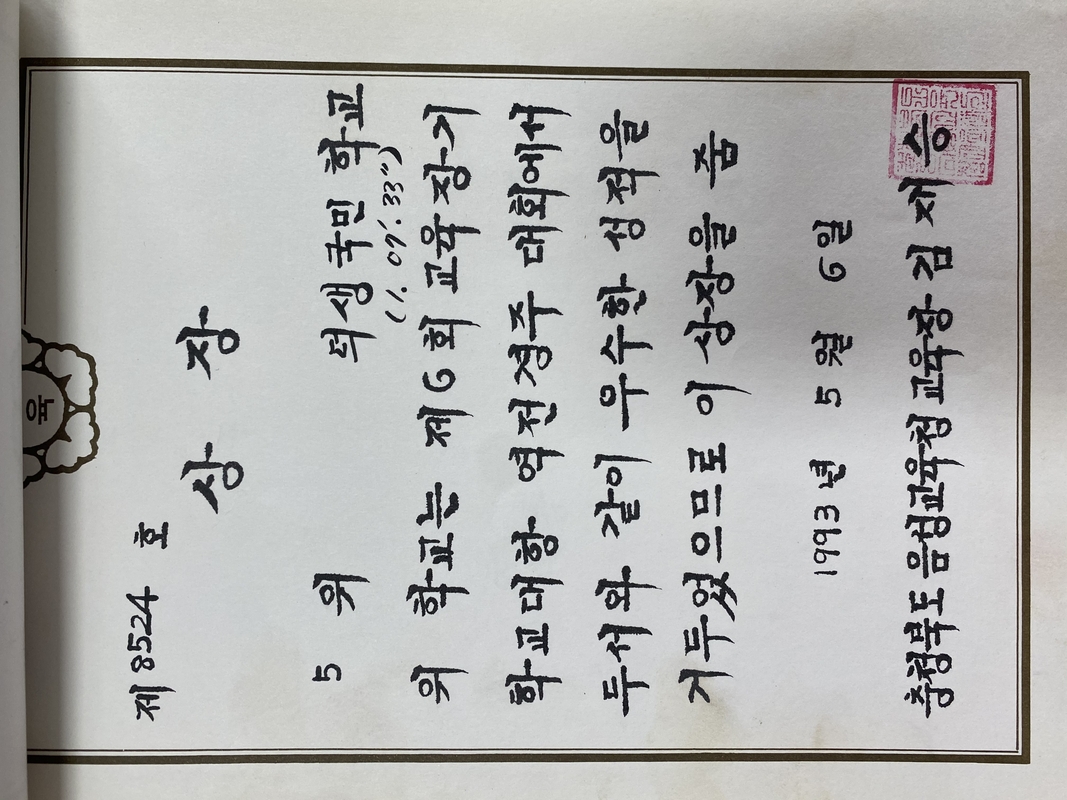 육
제 8524 호
상 장
5 위 덕생국민 학교
(1. 07'. 33")
위 학교는 제6회 교육장기
학교대항 역전경주 대회에서
두서와 같이 우수한 성적을
거두었으므로 이 상장을 줌
1993년 5월 6일
충청북도음성교육청교육장 김재승